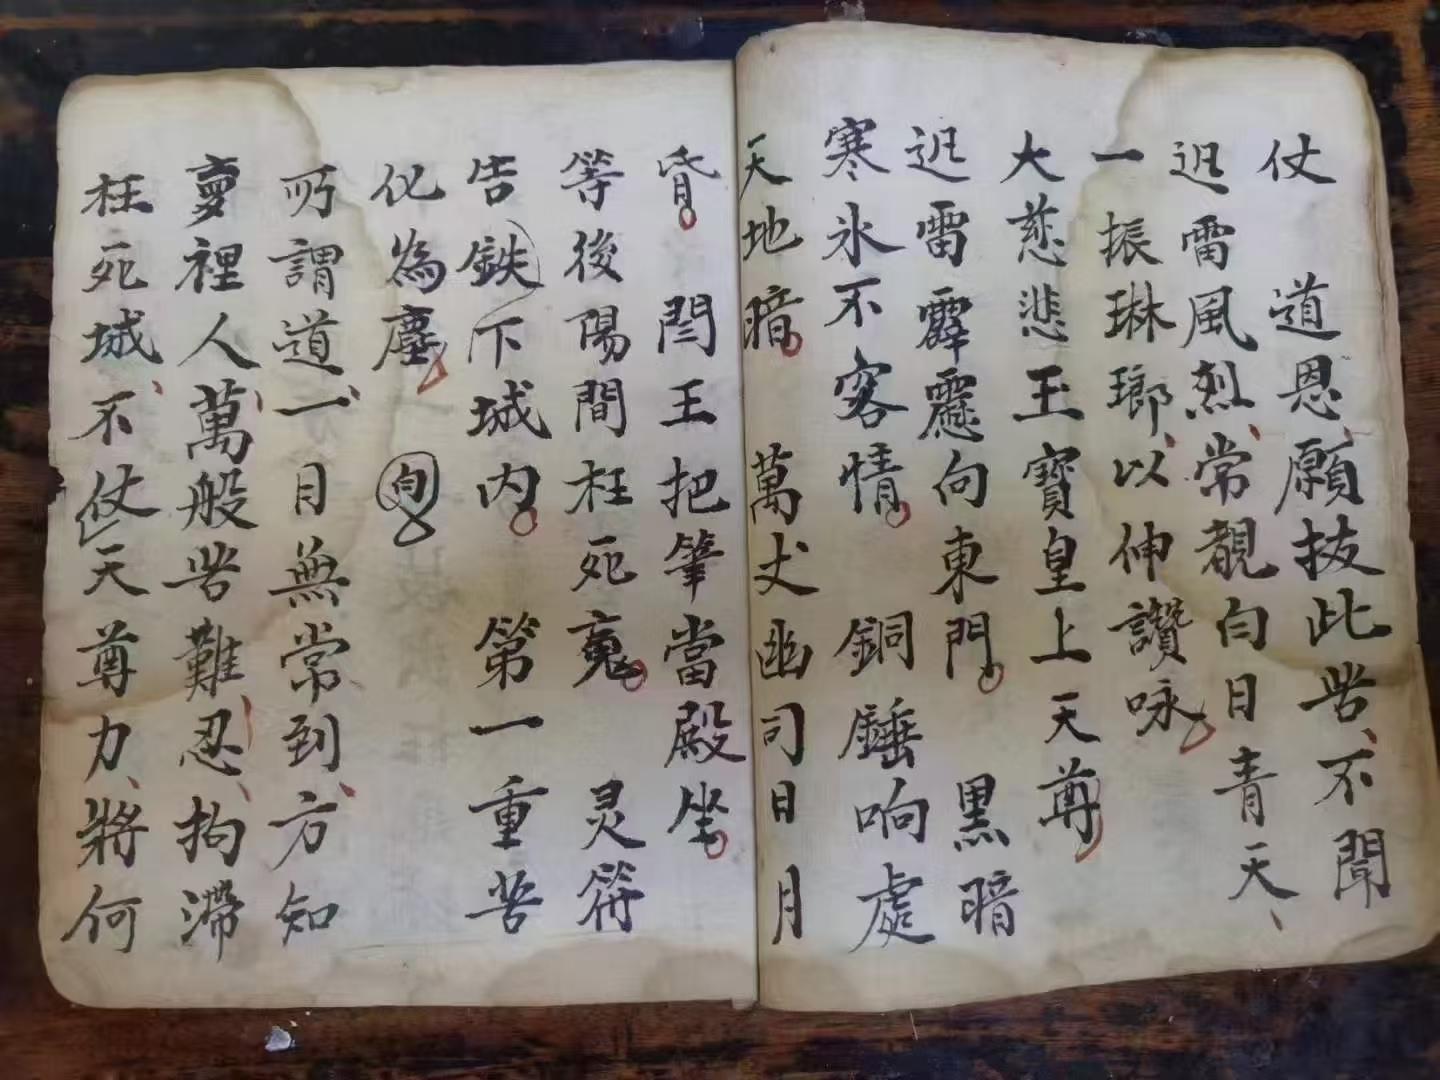 仗　道恩、願拔此苦、不聞
迅雷風烈、常覩白日青天、
一振琳瑯、以伸讚咏
大慈悲王寶皇上天尊
迅雷霹靂向東門。　黑暗
寒氷不容情。　銅錘响處
天地暗。　萬丈幽司日月
昏。　閆王把筆當殿坐。
等後陽間枉死魂。　灵符
告鉄下城内。　第一重苦
化為塵　句
所謂道、一日無常到、方知
夢裡人、萬般苦難忍、拘滯
枉死城、不仗天尊力、將何